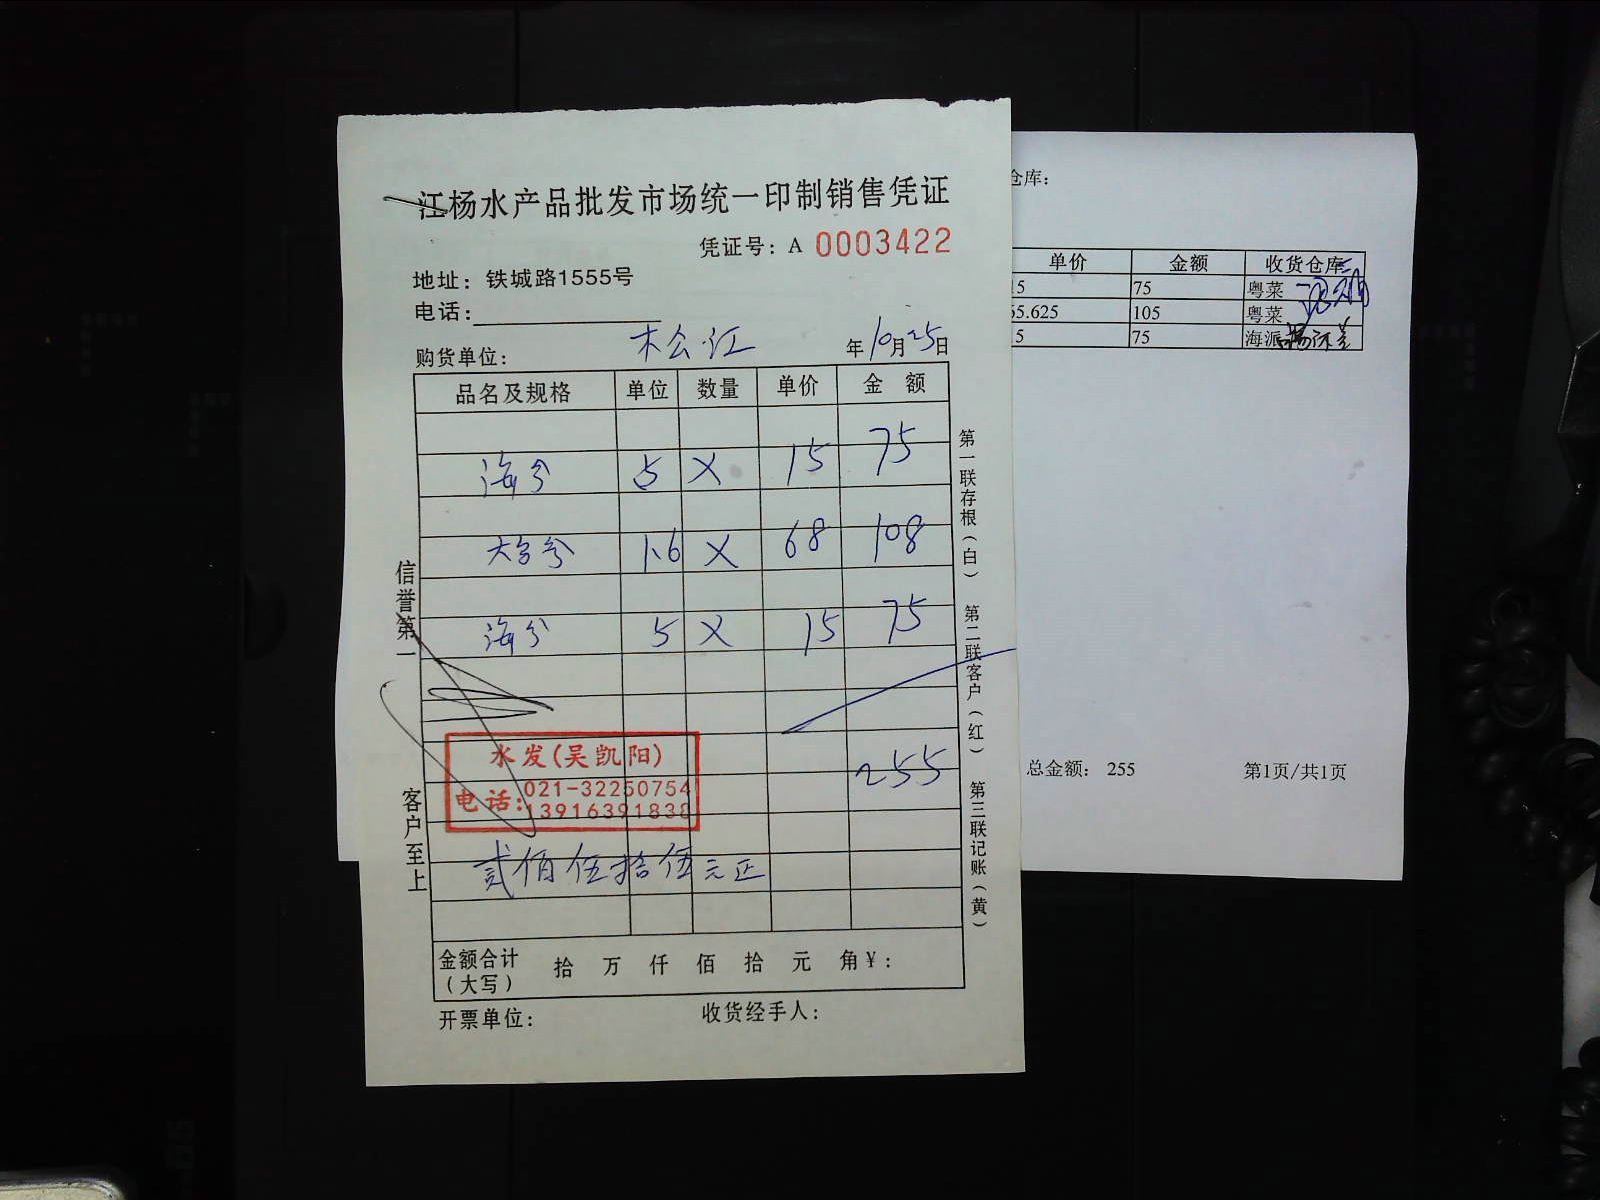 江杨水产品批发市场统一印制销售凭证
凭证号：A 0003422
地址：铁城路1555号
电话：
购货单位： 松江 年10月25日
品名及规格 单位 数量 单价 金 额
5 X 15 75
1.6 X 68 108
5 X 15 75
255
水发(吴凯阳)
电话：
021-32250754
1391639183
贰佰伍拾伍元正
金额合计
（大写）
拾 万 仟 佰 拾 元 角¥：
开票单位： 收货经手人：
信誉第一
客户至上
第一联存根（白）
第二联客户（红）
第三联记账（黄）
仓库：
单价 金额 收货仓库
5 75 粤菜
5.625 105 粤菜
5 75 海派
总金额： 255
第1页/共1页